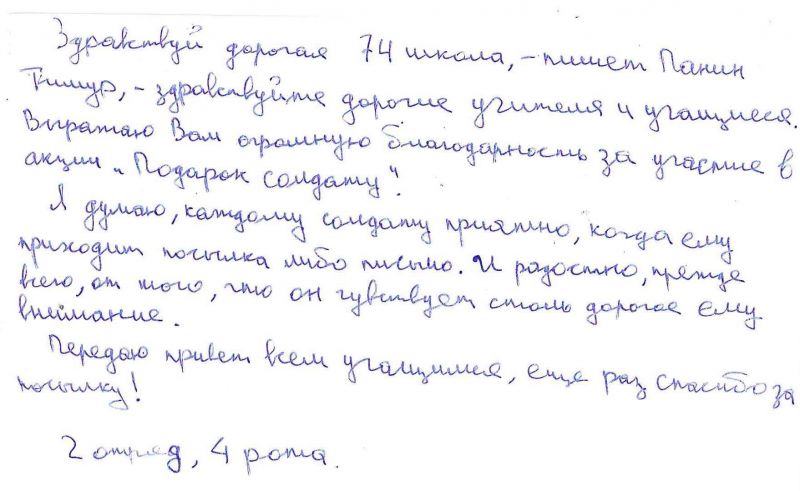 Здравствуй дорогая 74 школа, - пишет Панин
Тимур, - здравствуйте дорогие учителя и учащиеся.
Выражаю Вам огромную благодарность за участие в
акции „Подарок солдату".
Я думаю, каждому солдату приятно, когда ему
приходит посылка либо письмо. И радостно, прежде
всего, от того, что он чувствует столь дорогое ему
внимание.
Передаю привет всем учащимся, еще раз спасибо за
посылку!
2 отряд, 4 рота.